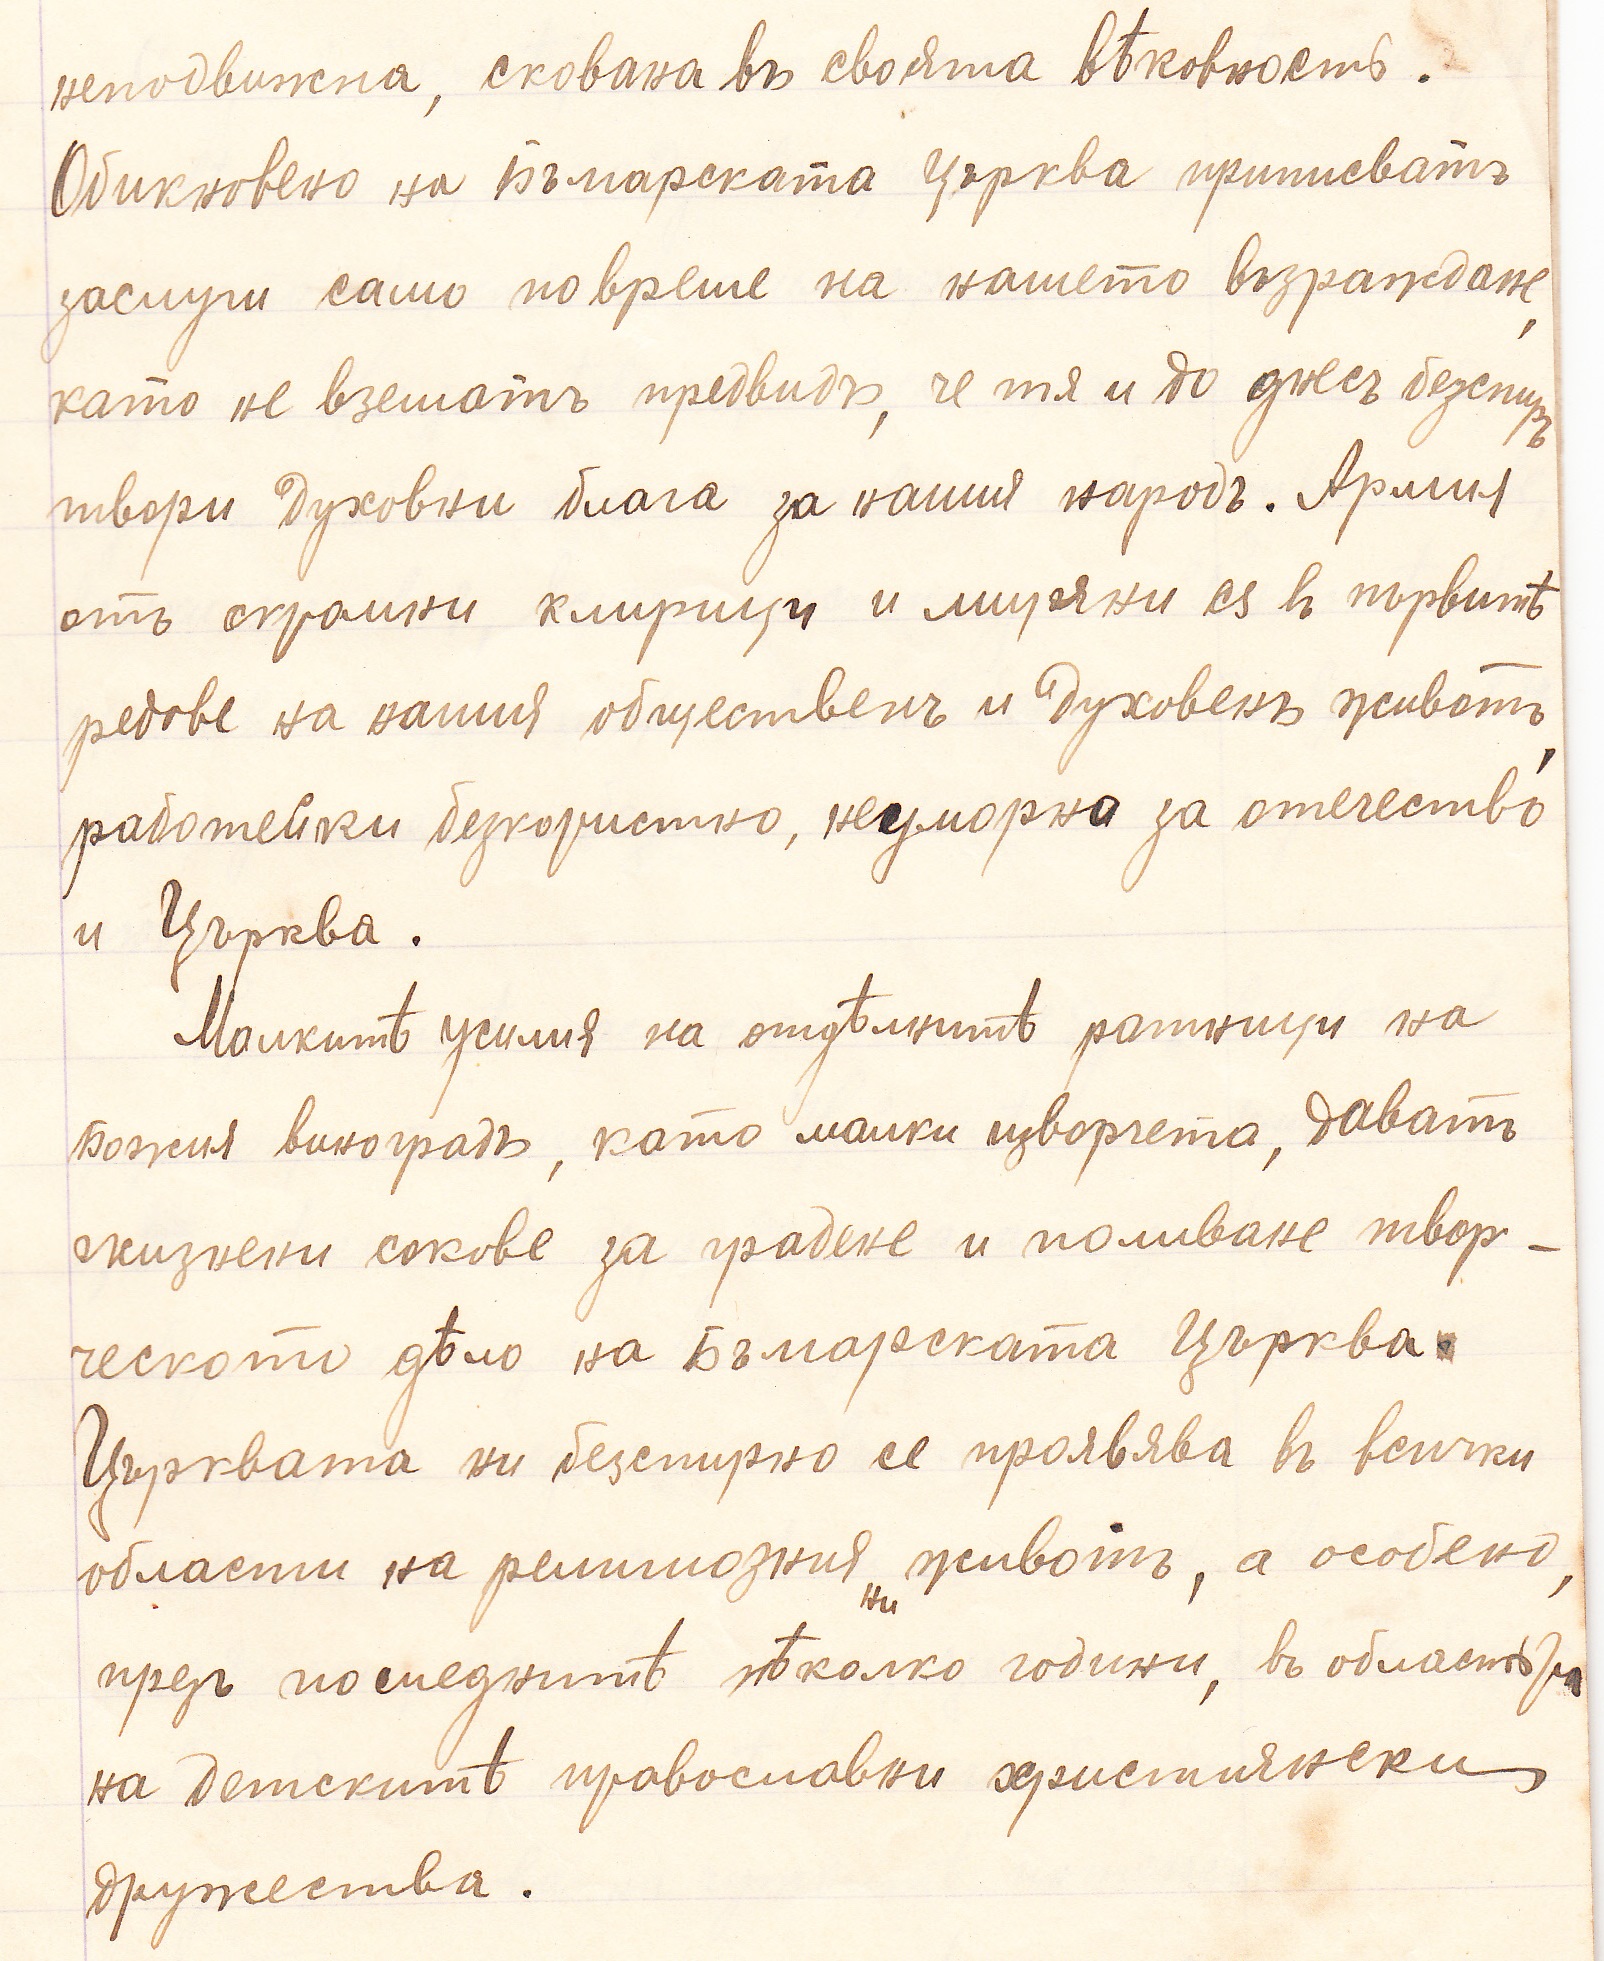 неподвижна, скована въ своята вѣковность.
Обикновено на Българската Църква приписватъ
заслуги само по време на нашето възраждане,
като не взематъ предвидъ, че тя и до днесъ безспиръ
твори духовни блага за нашия народъ. Армия
отъ скромни клирици и миряни са въ първитѣ
редове на нашия общественъ и духовенъ животъ,
работейки безкористно, неуморно за отечество
и Църква.
Малкитѣ усилия на отдѣлнитѣ ратници на
Божия виноградъ, като малки изворчета, даватъ
жизнени сокове за градене и поливане твор-
ческото дѣло на Българската Църква.
Църквата ни безспирно се проявява въ всички
области на религиозния ни животъ, а особено,
презъ последнитѣ нѣколко години, въ областьта
на детскитѣ православни християнски
дружества.